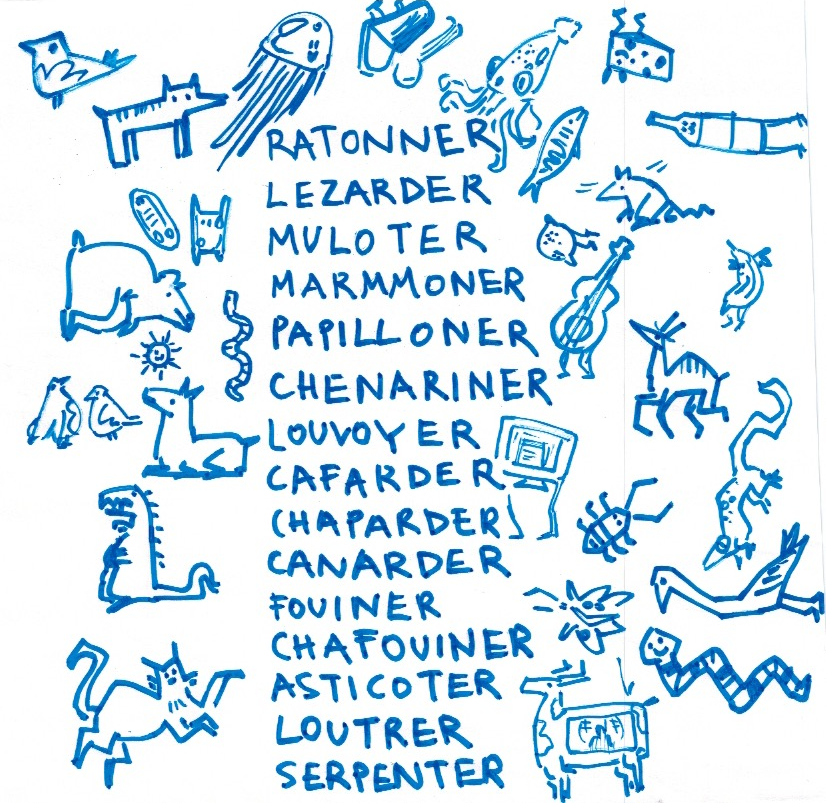 RATONNER
LEZARDER
MULOTER
MARMMONER
PAPILLONER
CHENARINER
LOUVOYER
CAFARDER
CHAPARDER
CANARDER
FOUINER
CHAFOUINER
ASTICOTER
LOUTRER
SERPENTER